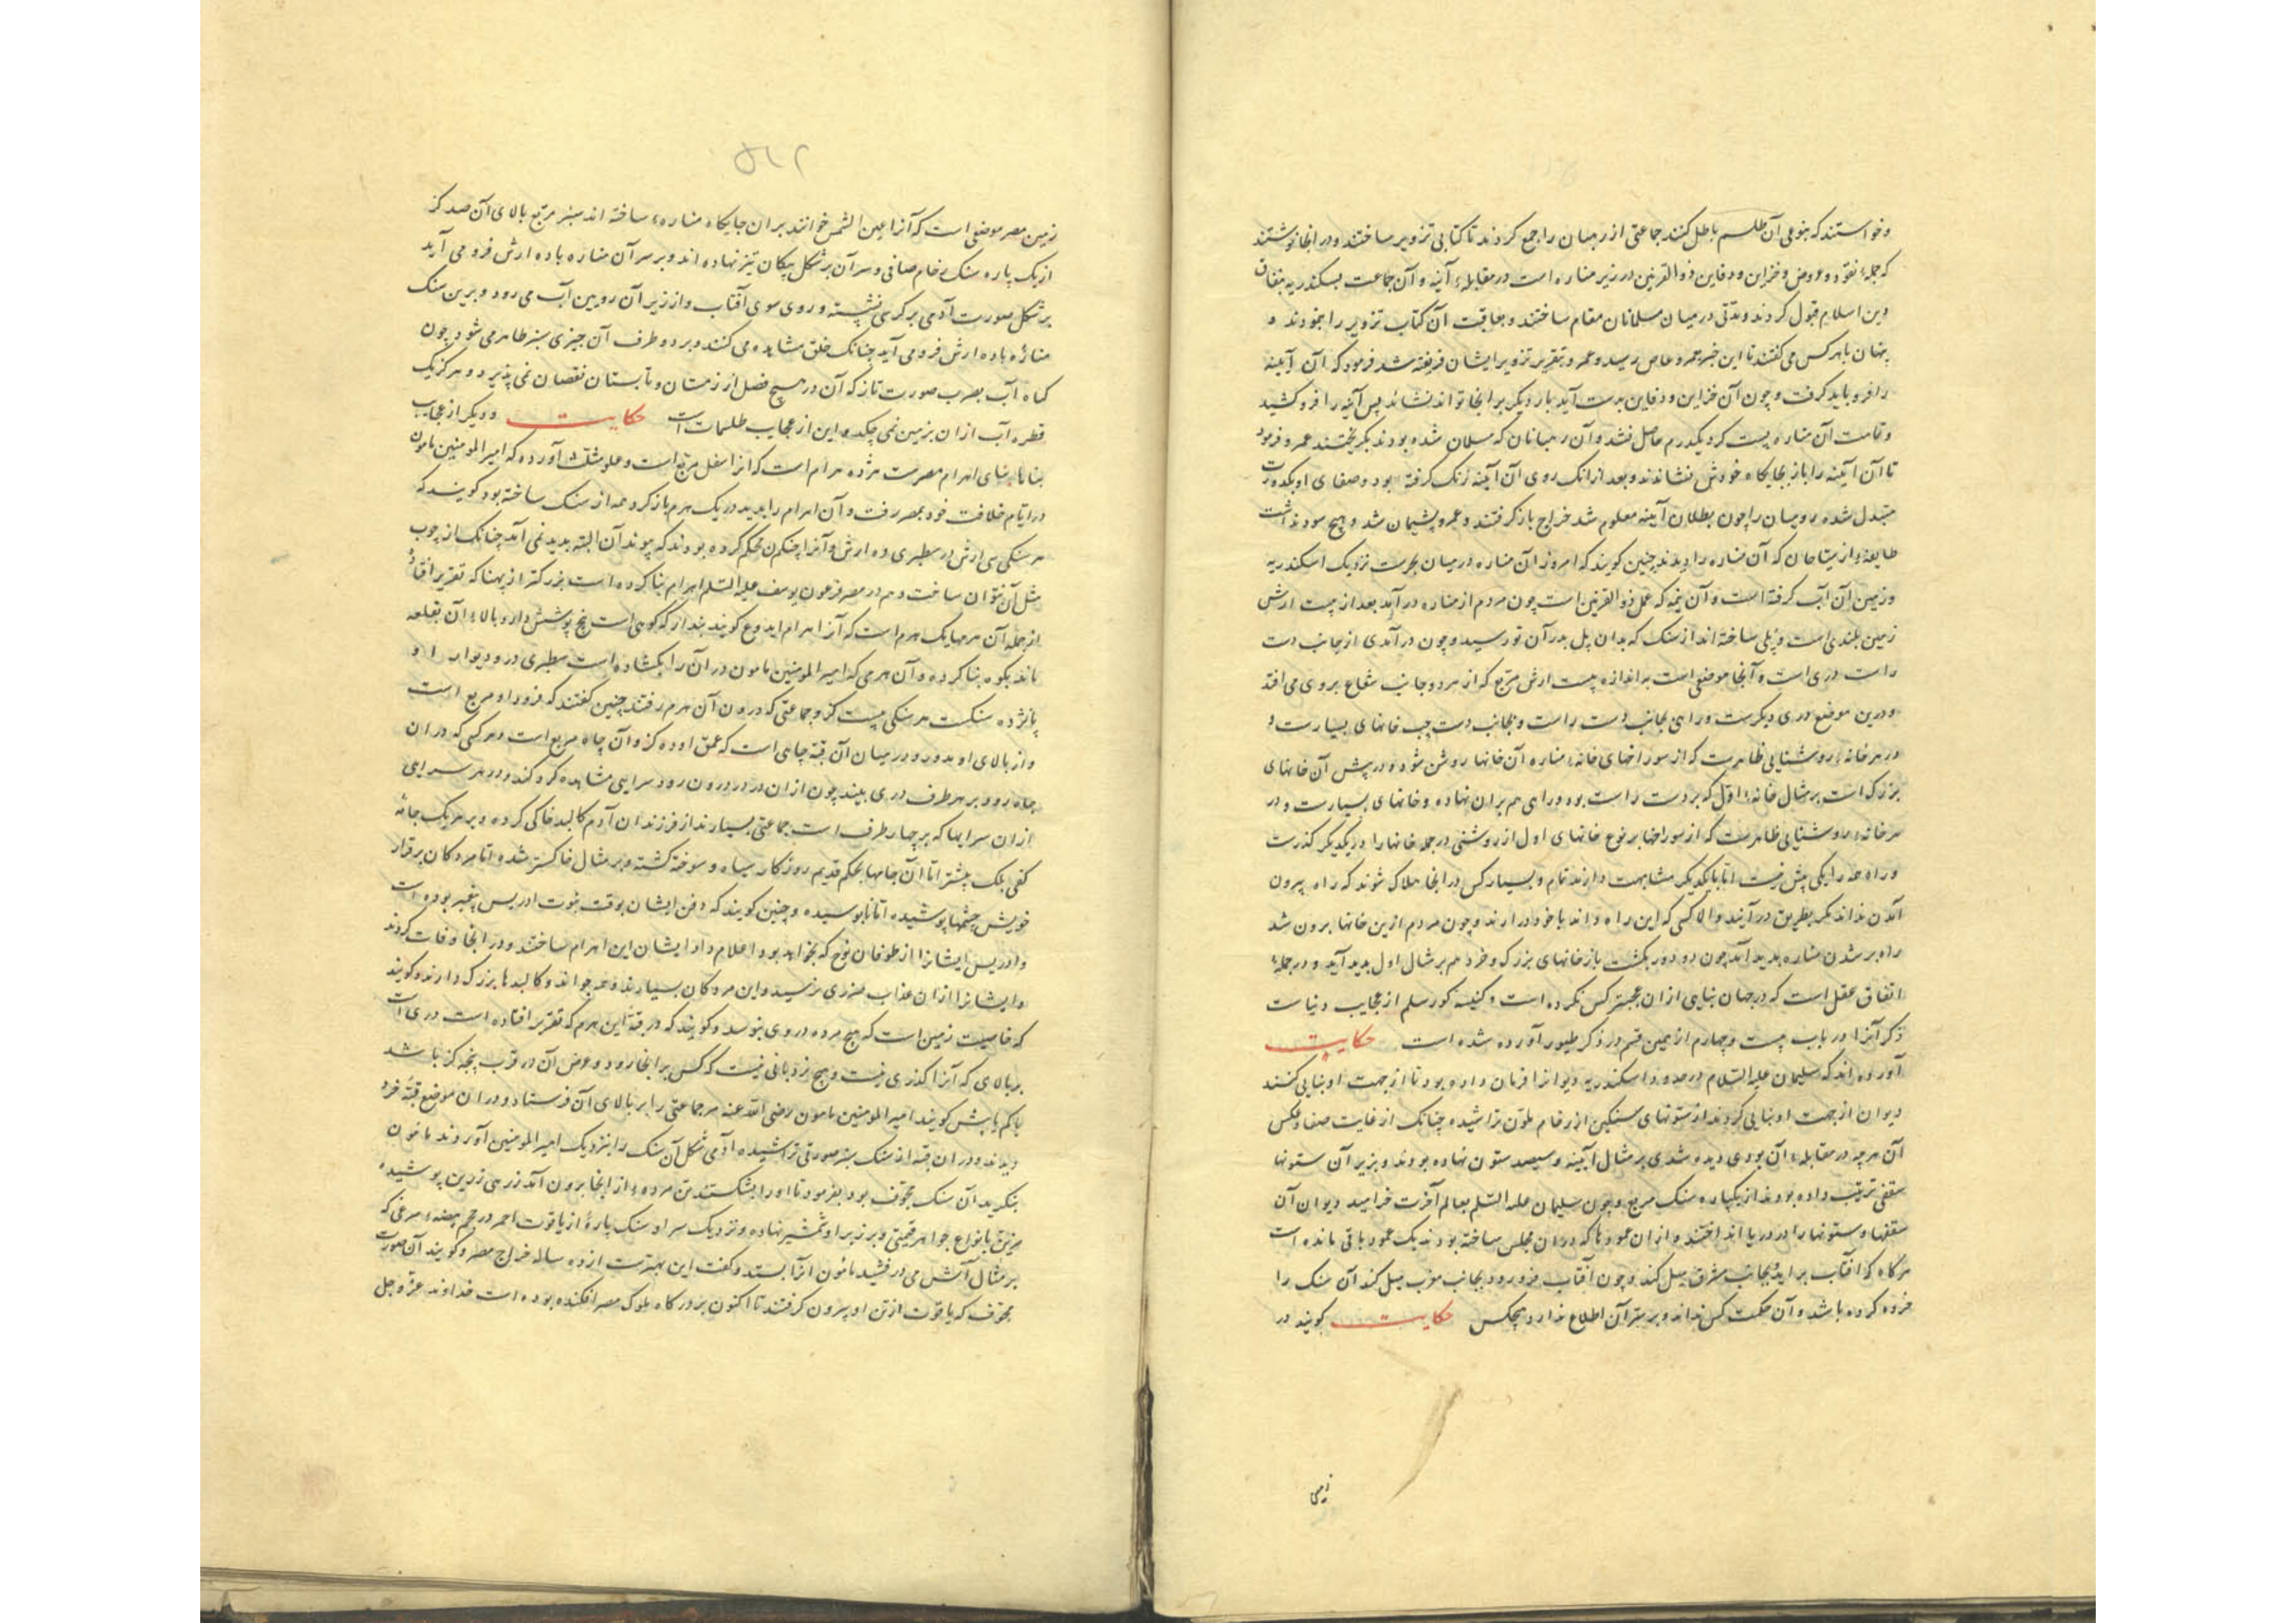 وخواستند که بنوعی آن طلسم باطل کنند جماعتی از رهبان را جمع کردند تا کتابی تزویر ساختند و در انجا نوشتند
که جمله نقود و عروض و خزاین و دفاین ذو القرنین در زیر مناره است در مقابله آینه و آن جماعت بسکندریه بنفاق
دین اسلام قبول کردند و مدتی در میان مسلمانان مقام ساختند و بعاقبت آن کتاب تزویر را بنمودند و
پنهان با هر کس می گفتند تا این خبر بعمرو عاص رسید و عمرو بتقریر تزویر ایشان فریفته شد فرمود که آن آیینه
را فرو باید گرفت و چون آن خزاین و دفاین بدست آید بار دیگر بر انجا تواند نشاند پس آینه را فرو کشید
و قامت آن مناره پست کرد یکدرم حاصل نشد و آن رهبانان که مسلمان شده بودند بگریختند عمرو فرمود
تا آن آیینه را باز بجایگاه خودش نشاندند و بعد از انک روی آن آیینه زنک گرفته بود و صفای او بکدورت
متبدل شده رومیان را چون بطلان آیینه معلوم شد خراج باز گرفتند و عمرو پشیمان شد و هیچ سود نداشت
طایفه از سیاحان که آن مناره را دیدند چنین کویند که امروز آن مناره در میان بحرست نزدیک اسکندریه
و زمین آن آب گرفته است و آن نیمه که عمل ذو القرنین است چون مردم از مناره در آید بعد از بیست ارش
زمین بلندی است و پلی ساخته اند از سنک که بدان پل بدر آن تو رسید و چون در آمدی از جانب دست
راست دری است و آنجا موضعی است به اندازه بیست ارش مربع که از هر دو جانب شعاع بر وی می افتد
و درین موضع دری دیکرست و راهی بجانب دست راست و بجانب دست چپ خانهای بسیارست و
در هر خانه روشنایی ظاهرست که از سوراخهای خانه مناره آن خانها روشن شود و در پیش آن خانهای
بزرک است بر مثال خانه اول که بر دست راست بود و راهی هم بران نهاده و خانهای بسیارست و در
هر خانه روشنایی ظاهرست که از سوراخها بر نوع خانهای اول از روشنی در جمله خانها را در یکدیکر گذرست
و راه همه را یکی بیش نیست اما با یکدیکر مشابهت دارند تمام و بسیار کس در انجا هلاک شوند که راه بیرون
آمدن نداند مکر بطریق در آیند و الا کسی که این راه داند با خود در آرند و چون مردم ازین خانها برون شد
راه بر شدن مناره پدید آید چون دو دور بکشت باز خانهای بزرک و خرد هم بر مثال اول پدید آید و در جمله
اتفاق عقل است که در جهان بنایی از ان عجبتر کس نکرده است و کنیسه کور سلم از عجایب دنیاست
ذکر آنرا در باب بیست و چهارم از همین قسم در ذکر طیور آورده شده است حکایت
آورده اند که سلیمان علیه السلام در حدود اسکندریه دیوانرا فرمان داده بود تا از جهت او بنایی کنند
دیوان از جهت او بنایی کردند از ستونهای سنگین از رخام ملون تراشیده چنانک از غایت صفا و عکس
آن هر چه در مقابله آن بودی دیده شدی بر مثال آیینه و سیصد ستون نهاده بودند و بزیر آن ستونها
سقفی ترتیب داده بودند از یکپاره سنک مربع و چون سلیمان علیه السلم بعالم آخرت خرامید دیوان آن
سقفها و ستونها را در دریا انداختند و از ان عمودها که در ان مجلس ساخته بودند یک عمود باقی مانده است
هر گاه که افتاب بر آید بجانب مشرق میل کند و چون آفتاب فرو رود بجانب مغرب میل کند آن سنک را
خروه کرده باشد و آن حکمت کس نداند و بر سر آن اطلاع ندارد هیچکس حکایت کویند در
زمین
زمین مصر موضعی است که آنرا عین الشمس خوانند بران جایکاه مناره ساخته اند سبز مربع بالای آن صد کز
از یک پاره سنک رخام صافی و سر آن بر شکل پیکان تیز نهاده اند و بر سر آن مناره باده ارش فرو می آید
بر شکل صورت آدمی بر کرسی نشسته و روی سوی آفتاب و از زیر آن رویین آب می رود و برین سنک
مناره باده ارش فرو می آید چنانک خلق مشاهده می کنند و بر دو طرف آن چیزی سبز ظاهر می شود چون
کیاه آب بصرب صورت تازکه آن در هیچ فصل از زمستان و تابستان نقصان نمی پذیرد و هرکز یک
قطره آب از ان بزمین نمی چکد و این از عجایب طلسمات است حکایت و دیگر از عجایب
بناها بنای اهرام مصرست هژده هرام است که از اسفل مربع است و علو مثلث آورده که امیر المومنین مامون
در ایام خلافت خود بمصر رفت و آن اهرام را بدید در یک هرم باز کرد همه از سنک ساخته بود کویند که
هر سنکی سی ارش در سطبری ده ارش و آنرا چنکم محکم کرده بودند که پیوند آن البته پدید نمی آمد چنانک از چوب
مثل آن نتوان ساخت و هم در مصر فرعون یوسف علیه السلم اهرام بنا کرده است بزرکتر از پهنا که تقریر افتاد
از جمله آن هرمها یک هرم است که آنرا هرم ایدوع کویند پندار که کوهی است پنج پوشش دارد و بالای آن بقلعه
ماند بکوه بنا کرده و آن هرمی که امیر المومنین مامون در آن را بکشاده است سطبری در و دیوار او
پانزده سنکست هر سنکی بیست کز و جماعتی که درون آن هرم رفتند چنین گفتند که فرود او مربع است
و از بالای او مدور و در میان آن قبه چاهی است که عمق او ده کز و آن چاه مربع است و هر کسی که در ان
چاه رود بر هر طرف دری بیند چون از ان در در درون رود سرایی مشاهده کرد کند و در هر سرایی
از ان سرایها که بر چهار طرف است جماعتی بسیارند از فرزندان آدم کالبد خاکی کرده و بر هر یک جامه
کفی بلک بیشتر اما آن جامها بحکم قدیم روزکار سیاه و سوخته کشته و بر مثال خاکستر شده اما مردکان برقرار
خویش چشمها پوشیده اما نابوسیده و چنین کویند که دفن ایشان بوقت نبوت ادریس پیغمبر بوده است
و ادریس ایشانرا از طوفان نوح که بخواهد بود اعلام داد ایشان این اهرام ساختند و در انجا وفات کردند
و ایشانرا از ان عذاب ضرری نرسید و این مردکان بسیارند و همه جواند و کالبدها بزرک دارند و کویند
که خاصیت زمین است که هیچ مرده در وی بنوسد و کویند که در قبه این هرم که تقریر افتاده است دری است
بر بالای که آنرا گذری نیست و هیچ نردبانی نیست که کس بر انجا رود و عرض آن در قرب پنجه کز باشد
یا کم یا بیش کویند امیر المومنین مامون رضی الله عنه مر جماعتی را بر بالای آن فرستاد و در ان موضع قبه خرد
دیدند و در ان قبه از سنک سبز صورتی تراشیده آدمی شکل آن سنک را بنزدیک امیر المومنین آوردند مامون
بنکرید آن سنک مجوف بود بفرمود تا او را بشکستند تن مرده از انجا برون آمد زرهی زرین پوشیده
مزین بانواع جواهر قیمتی و بر زبر او شمشیر نهاده و نزدیک سر او سنک پاره از یاقوت احمر در حجم بیضه مرغی که
بر مثال آتش می درفشید مامون انرا بستد و کفت این بهترست از ده ساله خراج مصر و کویند آن صورت
مجوف که یاقوت از تن او بیرون کرفتند تا اکنون بر درکاه ملوک مصر افکنده بوده است خداوند عز و جل